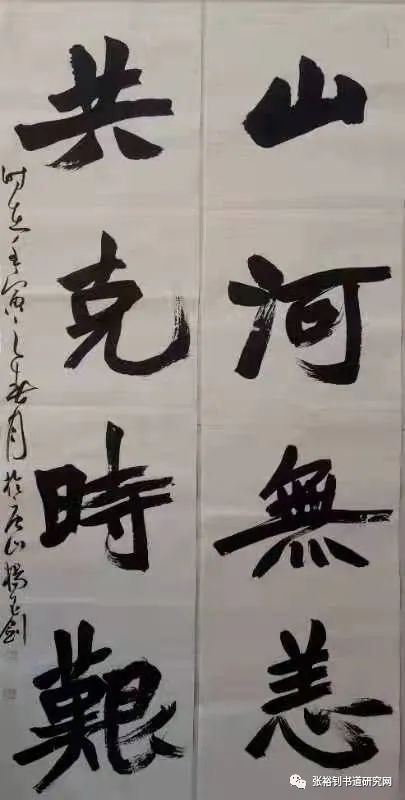 山河無恙
共克時艱
时在壬寅之春月於山楊剑
张裕钊书道研究网